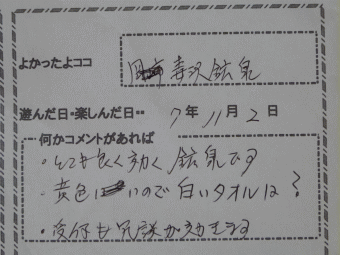 よかったよココ 寿沢鉱泉
遊んだ日・楽しんだ日・・ 7年 11月 2日
何かコメントがあれば
・とても良く効く鉱泉です
・黄色いので白いタオルは?
・受付も冗談が効きます